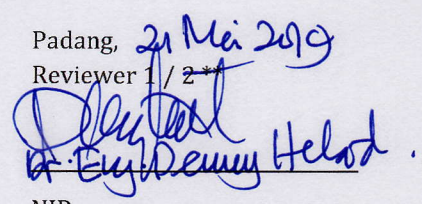 Padang, 21 Mei 2019
Reviewer 1 / 2 **
Dr. Eng. Denny Helard.
NIP